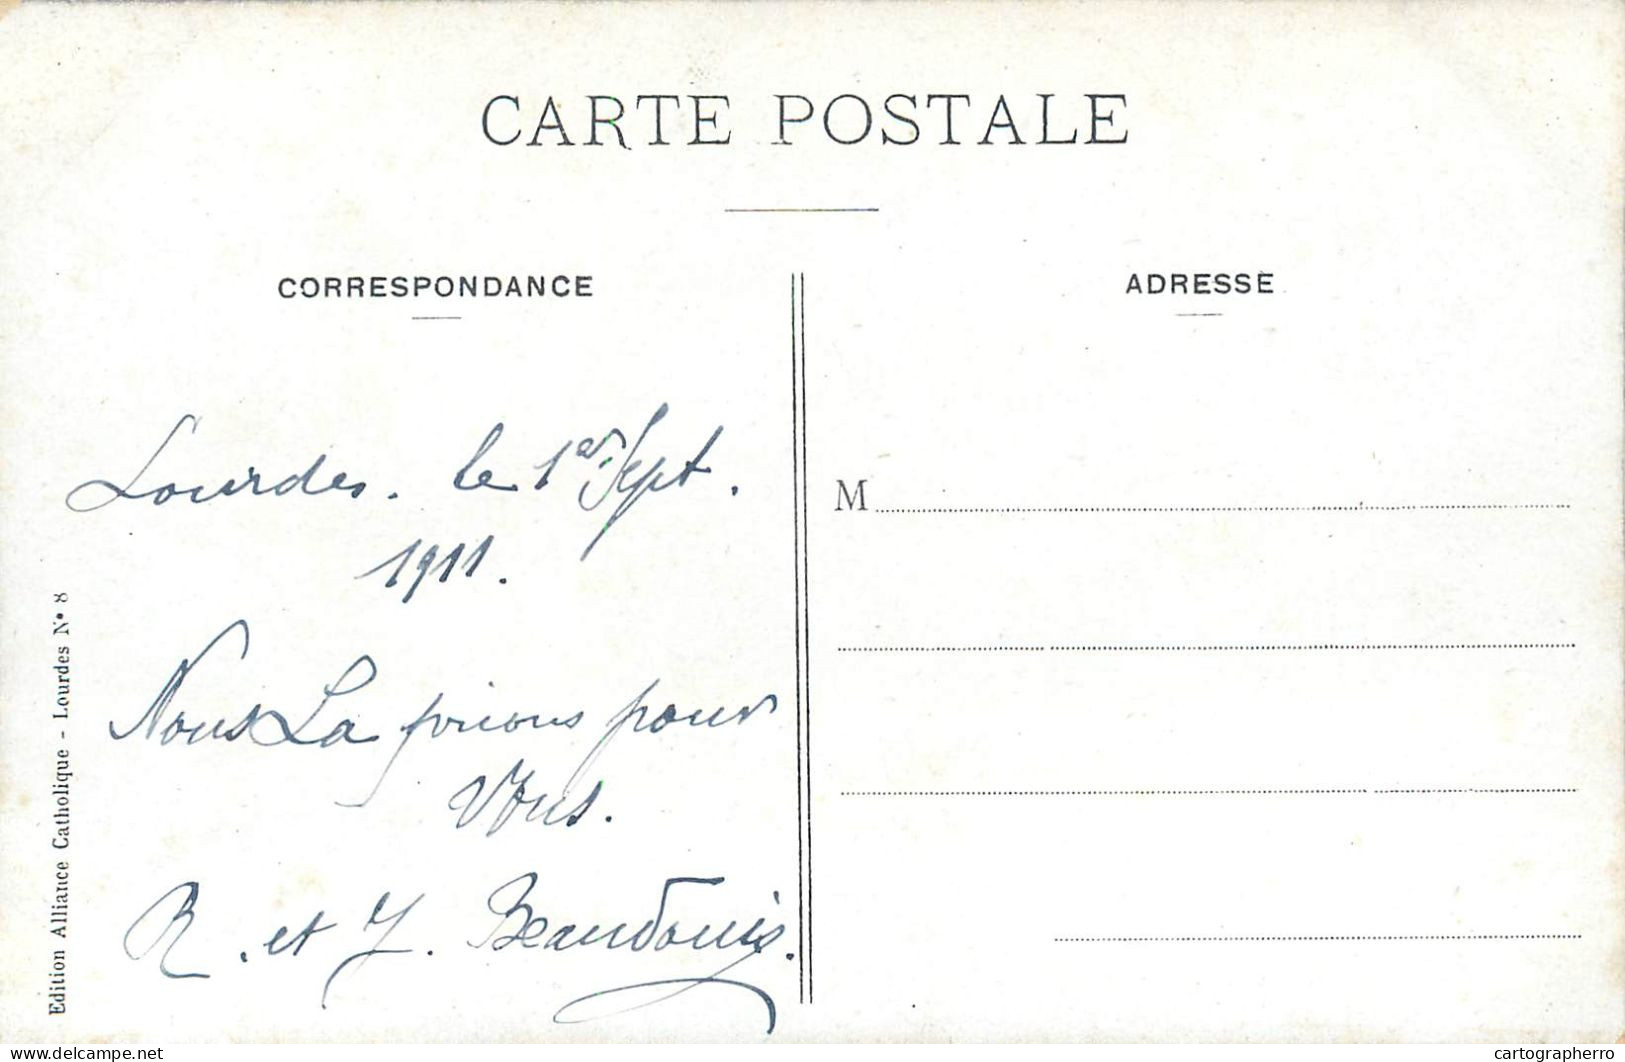 CARTE POSTALE
CORRESPONDANCE
ADRESSE
Lourdes. le 1er Sept.
1911.
Nous La prions pour
Vous.
R. et J. Beaudouis.
M
Edition Alliance Catholique - Lourdes N° 8
delcampe.net
cartographerro